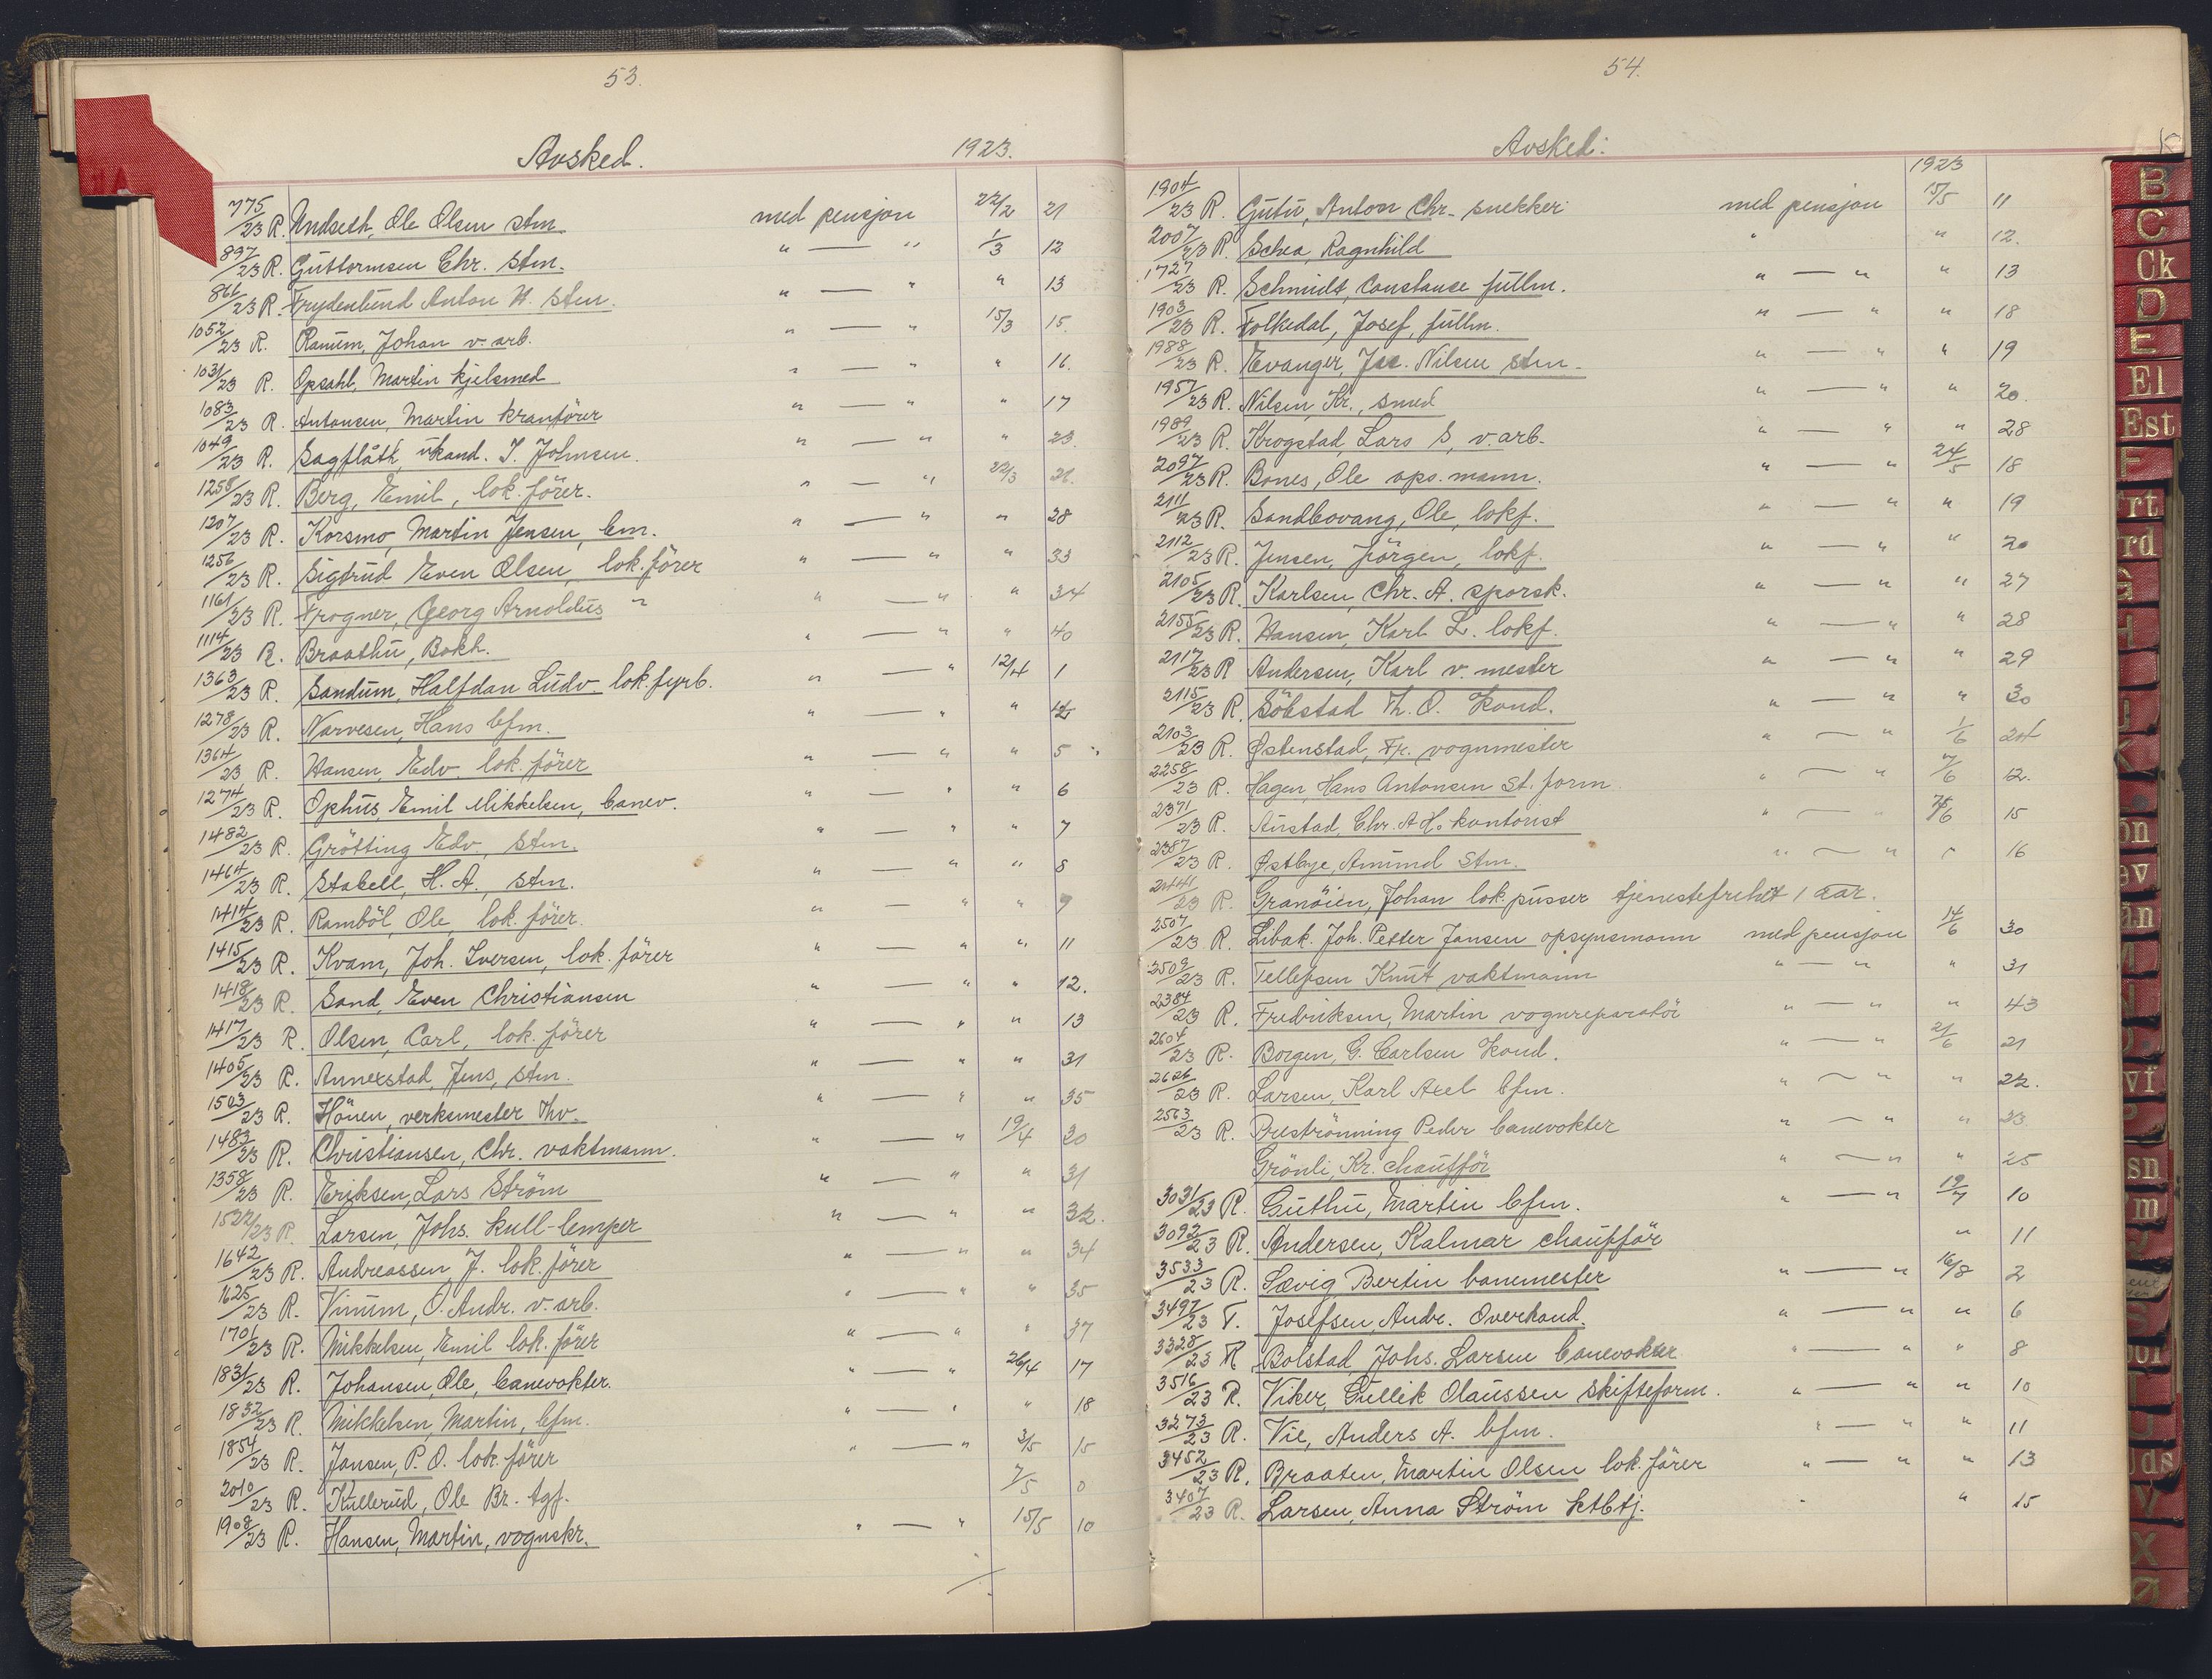 53.
Avsked. 1923.
775/23 R. Undseth, Ole Olsen stm. med pensjon 22/2 21
897/23 R. Guttormsen Chr. stm. " — " 1/3 12
861/23 R. Frydenlund Anton H. stm. " — " " 13
1052/23 R. Ranum, Johan v. arb. " — " 15/3 15.
1031/23 R. Opsahl, Martin kjelsmed " — " " 16.
1083/23 R. Antonsen, Martin kranförer " — " " 17
1049/23 R. Sagflåth, ukond. J. Johnsen. " — " " 23.
1258/23 R. Berg, Emil, lok. förer. " — " 22/3 26.
1207/23 R. Korsmo, Martin Jensen, bm. " — " " 28
1256/23 R. Sigstrud Even Olsen, lok. förer " — " " 33
1161/23 R. Frogner, Georg Arnoldus " " — " " 34
1114/23 R. Braathu, Bokh. " — " " 40
1363/23 R. Sandum, Halfdan Ludv. lok. fyrb. " — " 12/4 1
1278/23 R. Narvesen, Hans bfm. " — " "
1364/23 R. Hansen, Edv. lok. förer " — " " 5
1274/23 R. Ophus, Emil Mikkelsen, banev. " — " " 6
1482/23 R. Grötting Edv., stm. " — " " 7
1464/23 R. Stabell, H. A., stm. " — " " 8
1414/23 R. Ramböl, Ole, lok. förer. " — " " 9
1415/23 R. Kvam, Joh. Iversen, lok. förer " — " " 11
1418/23 R. Sand, Even Christiansen " — " " 12.
1417/23 R. Olsen, Carl, lok. förer " — " " 13
1405/23 R. Annexstad, Jens, stm. " — " " 31
1503/23 R. Hönen, verksmester Thv. " — " " 35
1483/23 R. Christiansen, Chr. vaktmann. " — " 19/4 30
1358/23 R. Eriksen, Lars Ström " — " " 31
1522/23 R. Larsen, Johs. kull-lemper " — " " 32.
1642/23 R. Andreassen J. lok. förer " — " " 34
1625/23 R. Vinum, O. Andr. v. arb. " — " " 35
1701/23 R. Mikkelsen, Emil lok. förer " — " " 37
1831/23 R. Johansen, Ole, banevokter. " — " 26/4 17
1832/23 R. Mikkelsen, Martin, bfm. " — " " 18
1854/23 R. Jansen, P. O. lok. förer " — " 3/5 15
2010/23 R. Kullerud, Ole Br. tgf. 7/5 0
1908/23 R. Hansen, Martin, vognskr. " — " 15/5 10
54.
Avsked:
1923
1904/23 R. Gutu, Anton Chr. snekker med pensjon 15/5 11
2007/23 R. Schea, Ragnhild " " 12.
1727/23 R. Schmidt, Constance fullm. " — " " 13
1903/23 R. Folkedal, Josef, fullm. " — " " 18
1988/23 R. Evanger, Jac. Nilsen stm. " — " " 19
1957/23 R. Nilsen, Kr., smed " — " " 20.
1989/23 R. Krogstad, Lars S, v. arb. " — " " 28
2097/23 R. Bones, Ole ops. mann. " — " 24/5 18
2111/23 R. Sandbovang, Ole, lokf. " — " " 19
2112/23 R. Jensen, Jörgen, lokf. " — " " 20
2105/23 R. Karlsen, Chr. A. sporsk. " — " " 27
2155/23 R. Hansen, Karl L. lokf. " — " " 28
2117/23 R Andersen, Karl v. mester " — " " 29
2115/23 R. Söbstad Th. O. kond. " — " " 30
2103/23 R. Østenstad, Fr. vognmester " — " 1/6 24
2258/23 R. Hagen, Hans Antonsen St. form. " — " 7/6 12.
2371/23 R. Austad, Chr. A H. kontorist " — " 15
2387/23 R. Østbye, Amund stm. " — " " 16
2441/23 R. Granöien, Johan lok. pusser tjenestefrihet 1 aar.
2507/23 R. Libak. Joh. Petter Jansen opsynsmann med pensjon 14/6 30
2509/23 R. Tellefsen Knut vaktmann " — " " 31
2384/23 R. Fredriksen, Martin vognreparatör " — " " 43
2604/23 R. Borgen, G. Carlsen kond. " — " 21/6 21
2626/23 R. Larsen, Karl Axel bfm. " — " " 22.
2563/23 R. Bruströnning Peder banevokter " — " " 23.
Grönli, Kr. chaufför " — " " 25
3031/23 R. Guthu, Martin bfm. " — " 19/7 10
3092/23 R. Andersen, Kalmar chaufför " 11
3533/23 R. Sævig Bertin banemester " — " 16/8 2
3497/23 T. Josefsen, Andr. Overkond. " — " " 6
3328/23 R Bolstad Johs. Larsen banevokter " — " " 8
3516/23 R. Viker, Gullik Olaussen skifteform. " — " " 10
3273/23 R. Vie, Anders A. bfm. " — " " 11
3452/23 R. Braaten, Martin Olsen lok. förer " — " " 13
3407/23 R. Larsen, Anna Ström ktbtj. " 15
B
C
Ck
D
E
El
Est
F